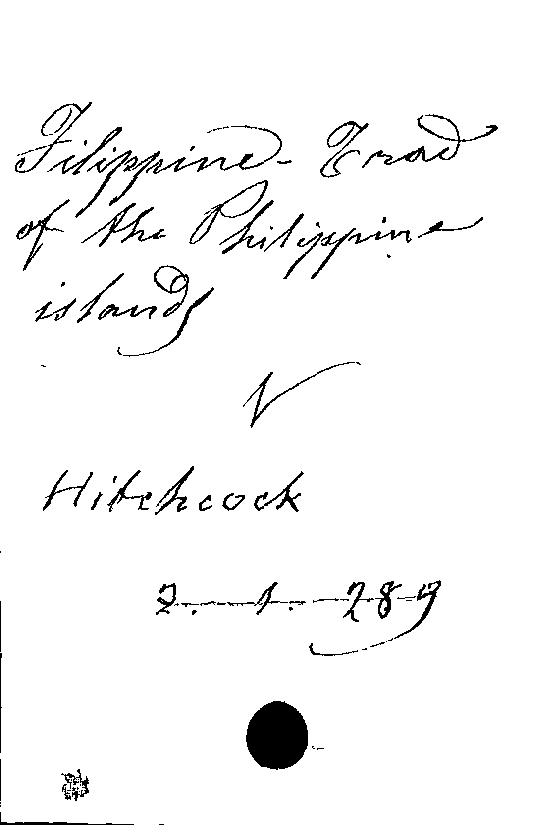 Filippine - Trad
of the Philippine
islands
V
Hitchcock
2. 1. 289